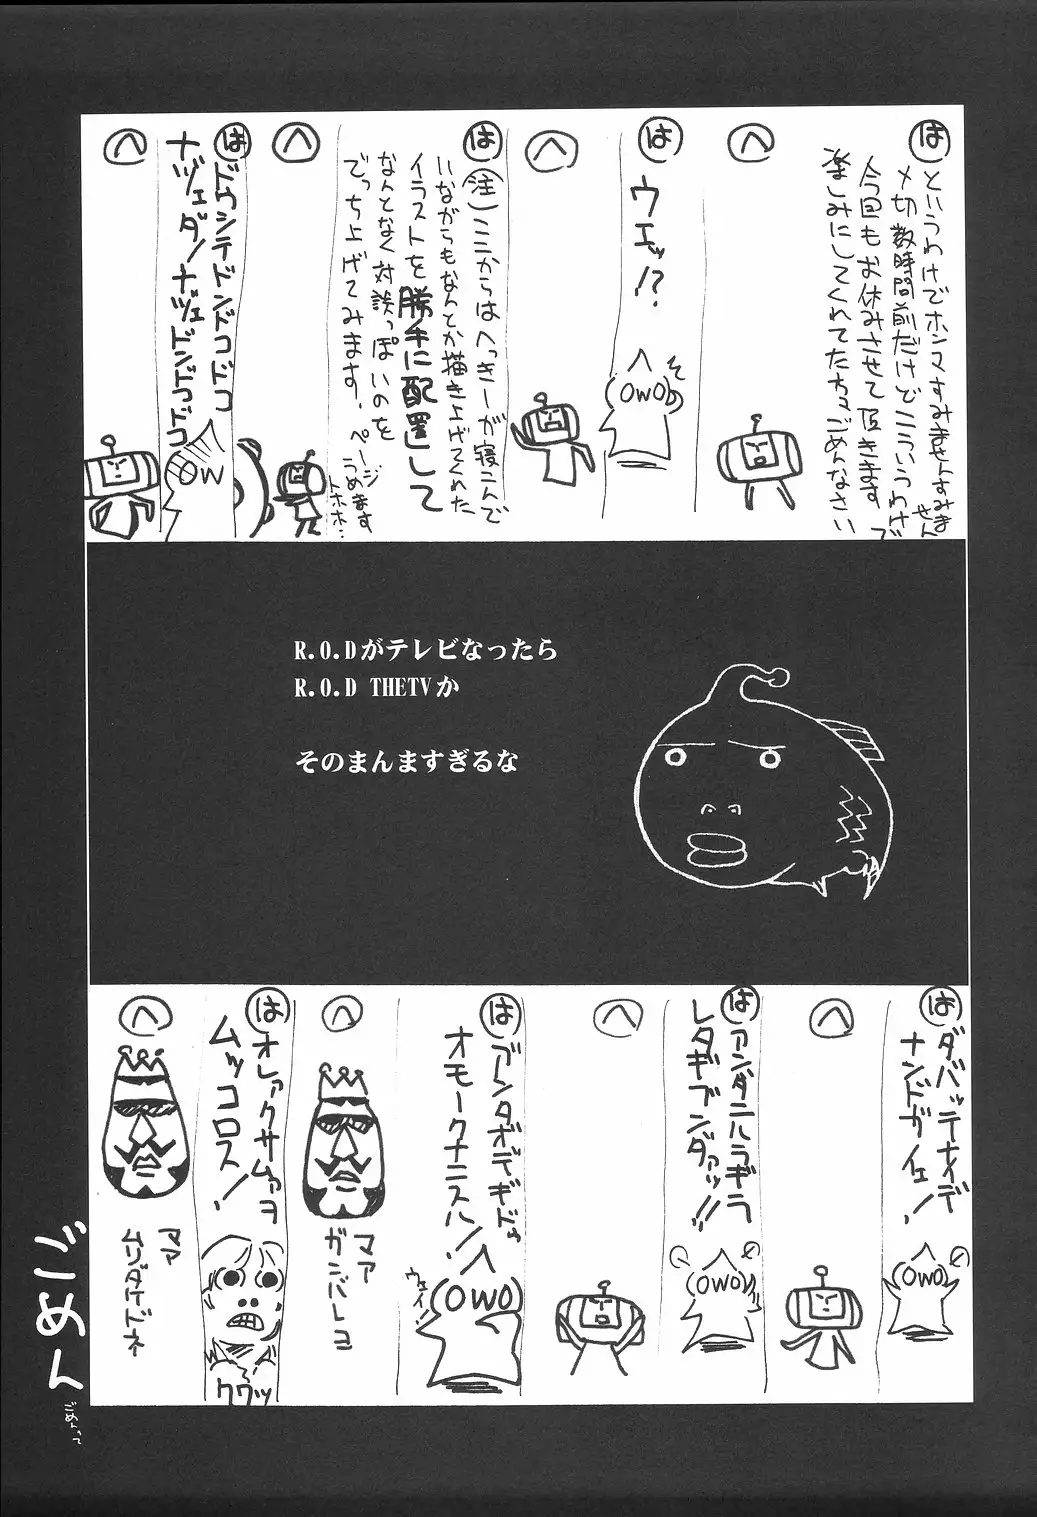 は
というわけでホンマすみませんすみません
〆切数時間前だけどこういうわけで
今回もお休みさせて頂きます
楽しみにしてくれてた方々ごめんなさい
へ
は
ウエッ!?
へ
は
(注)ここからはへっきーが寝こんで
いながらもなんとか描き上げてくれた
イラストを勝手に配置して
なんとなく対談っぽいのを
でっち上げてみます。
ページ
うめます
トホホ…
へ
は
ドウシテドンドコドコ
ナヅェダ!ナヅェドンドコドコ
OWO
へ
R.O.Dがテレビなったら
R.O.D THETVか
そのまんますぎるな
は
ダバッテナイデ
ナンドガイェ!
(OWO)
へ
は
アンダニハラギラ
レタギブンダァッ!!
(OWO)
へ
は
アンタボデギドゥ
オモークナニスル!
ウェイ!
(OWO)
へ
マァ
ガンバレヨ
は
オレァクサムァヲ
ムッコロス!
クワッ
へ
マァ
ムリダケドネ
ごめん
ごめんって